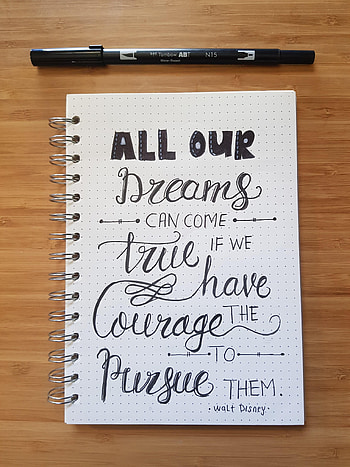 Tombow ABT N15
ALL OUR
Dreams
CAN COME
true IF WE
have
Courage THE
TO
Pursue THEM.
· Walt Disney ·